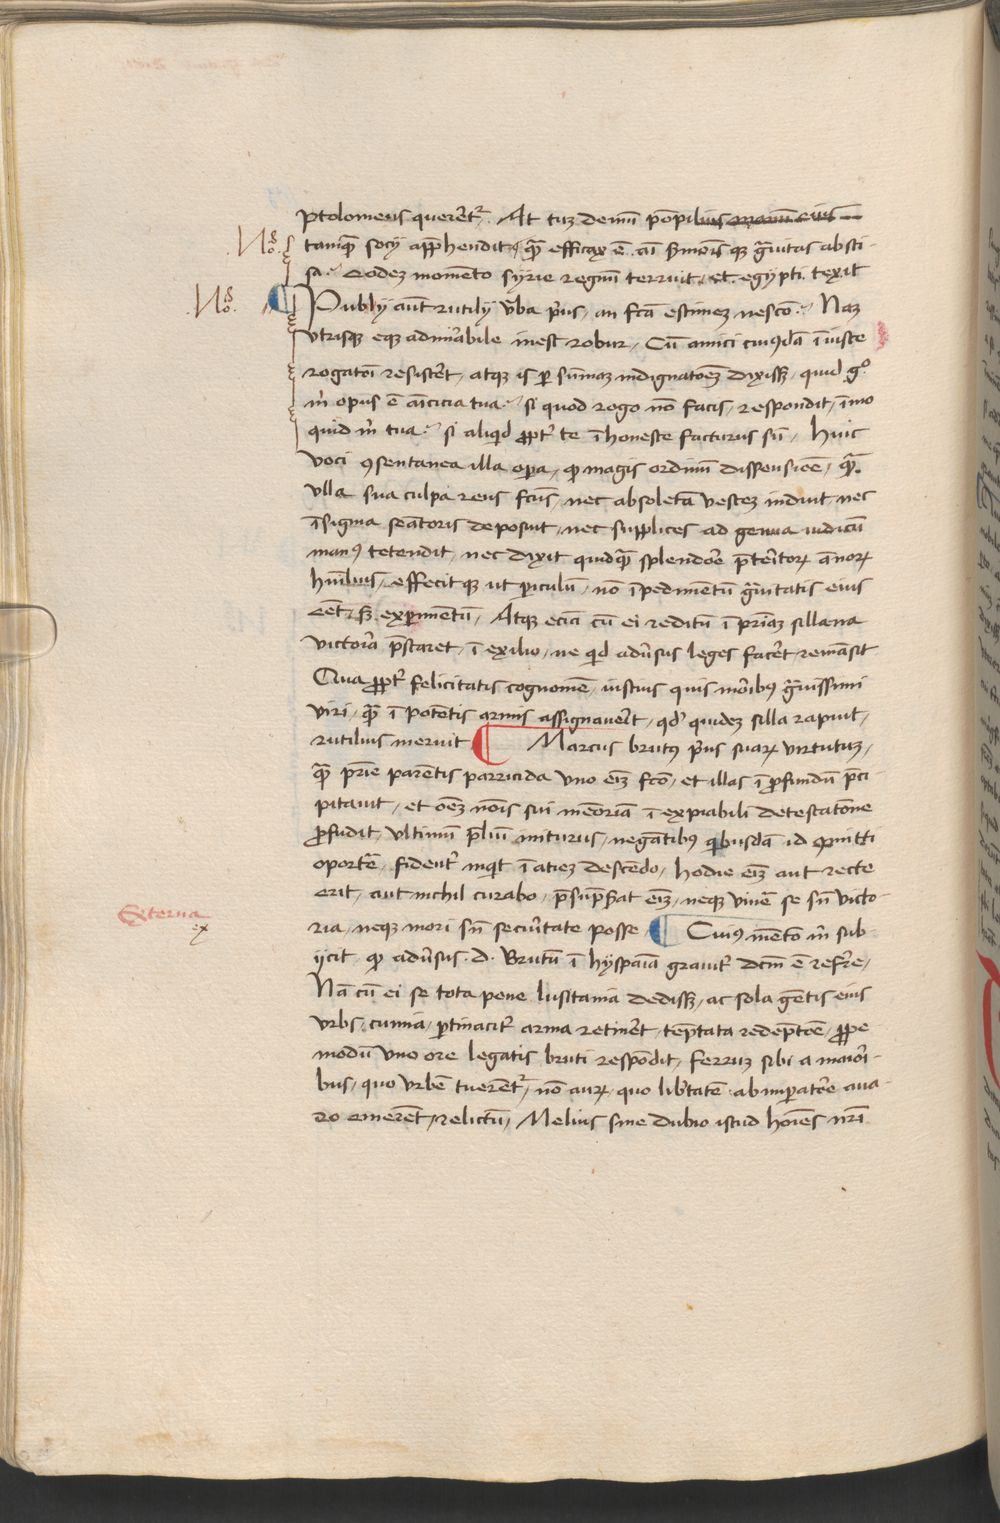 ptolomeus querēt᷑. At tuꝫ demū popilius manū eius
.Nō. tamꝙ̄ socÿ app̄hendit, ꝙ̄ efficax ē ai͞ s̄monis qꝫ g̃uitas absti-
sa. Eodeꝫ momēto syrie regnū terruit, et egypti texit
.Nō. Publÿ aūt rutilÿ v̄ba p̄us, an fc̄a estimeꝫ nescō. Naꝫ
vtrisqꝫ eqꝫ admirabile inest robur, Cū amici cuiusdā iniuste
rogatōi resistēt, atqꝫ is ꝑ sūmaꝫ indignatōeꝫ dixissꝫ, quid gͦ
m̄ opus ē aīcicia tua. si quod rogo nō facis, respondit, īmo
quid m̄ tua. si aliqid ꝓpt᷑ te īhoneste facturus sū, Huic
voci ꝯsentanea illa oꝑa, ꝙ magis ordinū dissensiōe, ꝙ̄
vlla sua culpa reus fc̄us, nec absoletā vesteꝫ induit nec
īsignia seātoris deposuit, nec supplices ad genua iudicū
manꝰ tetendit, nec dixit quidꝙ̄ splendōe p̄teritoꝝ ānoꝝ
humilius, effecitqꝫ ut ꝑiculū, nō īpedimentū g̃uitatis eius
eēt, sꝫ exꝑimentū, Atqꝫ eciā cū ei reditū ī priāꝫ sillana
victoria p̄staret, ī exilio, ne qid adūsus leges facēt remāsit
Qua ꝓpt᷑ felicitatis cognomē, iustius quis moribꝰ g̃uissimi
viri, ꝙ̄ ī potētis armis assignavēit, qd̕ quidez silla rapuit,
rutilius meruit Marcus brutꝰ p̄us suaꝝ virtutuꝫ,
ꝙ̄ pr̄ie parētis parricida vno eīꝫ fcō, et illas ī ꝓfundū p̄ci-
pitauit, et oēꝫ nōis sui mēoriā ī expiabili detestatōne
ꝓfudit, vltimū p̄liū initurus, negātibꝰ qibusdā id ꝯmitti
oportē, fident᷑ inqit ī acieꝫ descēdo, hodie eīꝫ aut recte
erit, aut nichil curabo, p̄sūp̄sat eīꝫ, neqꝫ vinc̄ se sn̄ victo-
Externa
ex
ria, neqꝫ mori sn̄ secūitate posse, Cuiꝰ mēto m̄ sub
ijcit ꝙ adūsus .d. Brutū ī hÿspaīa grauit᷑ dcm̄ ē refr̄e,
Nā cū ei se tota pene lusitania dedissꝫ, ac sola gētis eius
vrbs, cinnia, ꝑtinacit᷑ arma retinēt, tēptata redēptōe, ꝓpe
modū vno ore legatis bruti respōdit, ferruꝫ sibi a maiori-
bus, quo vrbē tuerēt᷑, nō auꝝ, quo lib̄tatē ab imꝑatōe aua-
ro emerēt, relictū, Melius sine dubio istud hoīēs nr̄i